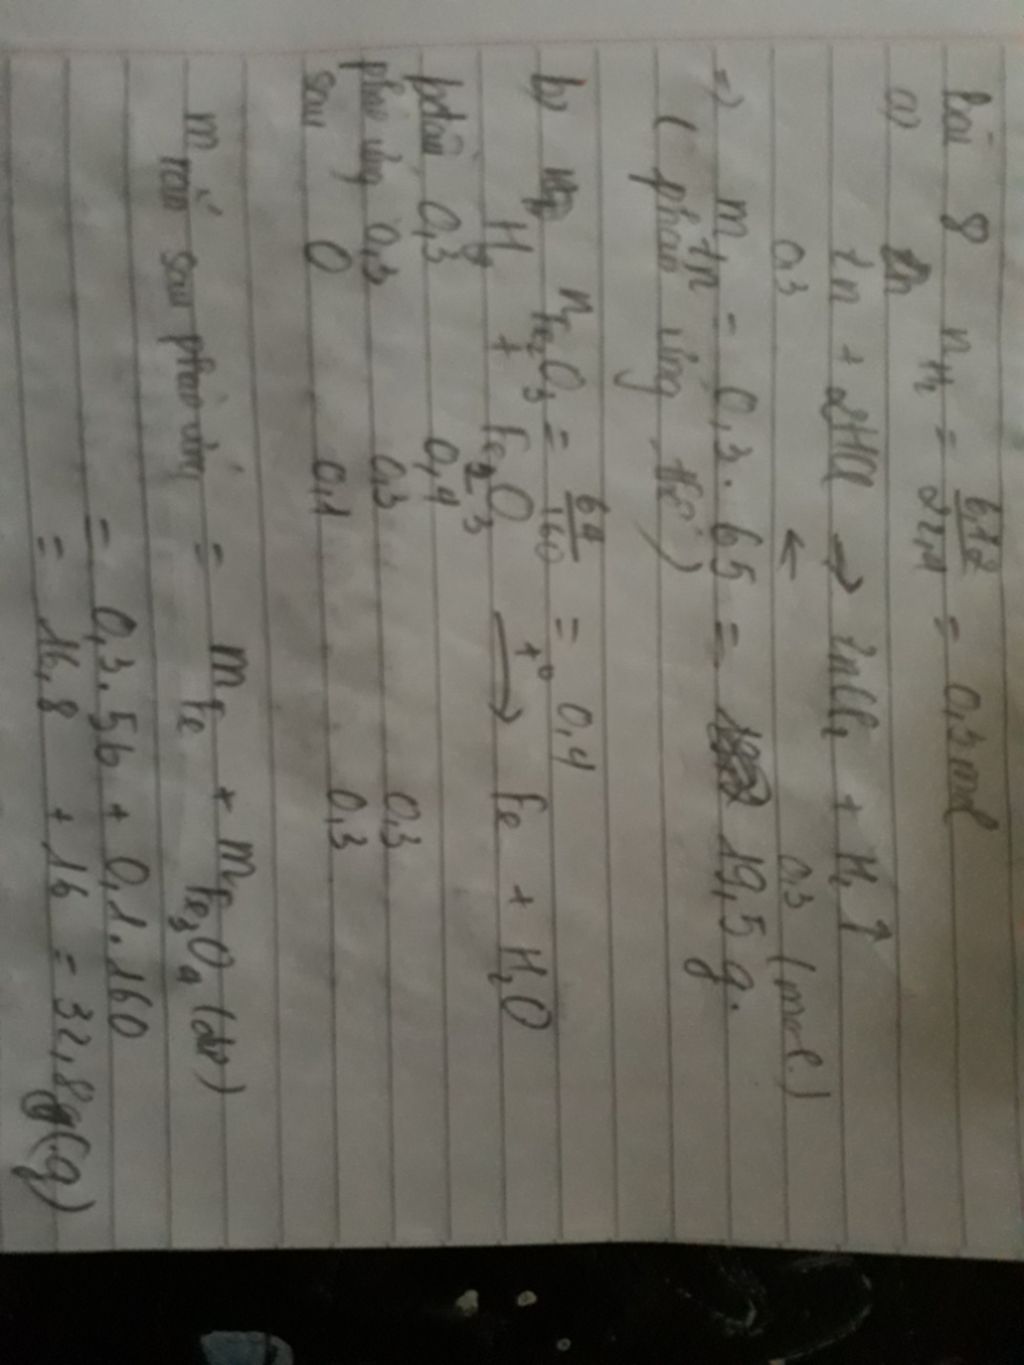 bài 8
a) nH2 = 6,72/22,4 = 0,3 mol
Zn + 2HCl → ZnCl2 + H2 ↑
0,3 ← 0,3 (mol)
=> mZn = 0,3 . 65 = 19,5 g.
( phản ứng hết )
b) nFe2O3 = 64/160 = 0,4
H2 + Fe2O3 t° → Fe + H2O
bđầu 0,3 0,4
phản ứng 0,3 0,3 0,3
sau 0 0,1 0,3
m rắn sau phản ứng = mFe + mFe3O4 (dư)
= 0,3.56 + 0,1.160
= 16,8 + 16 = 32,8 (g)